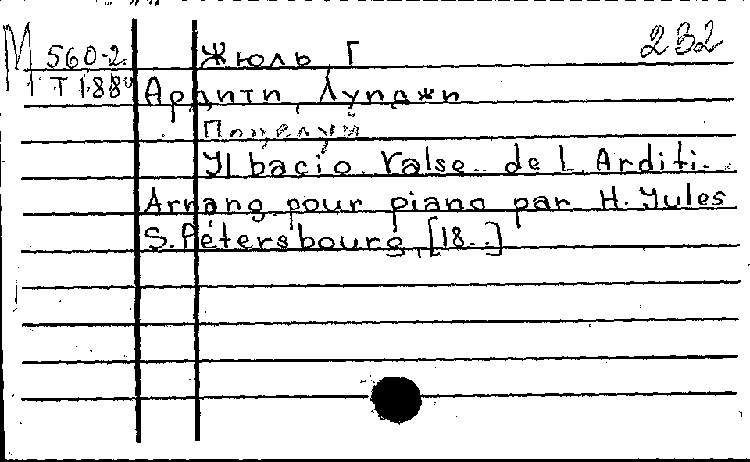 М 560-2. Жюль, Г 232
Т 1880 Ардити, Луиджи
Поцелуй
Il bacio. Valse de L. Arditi.
Arrang pour piano par H. Jules
S. Pétersbourg, [18..]